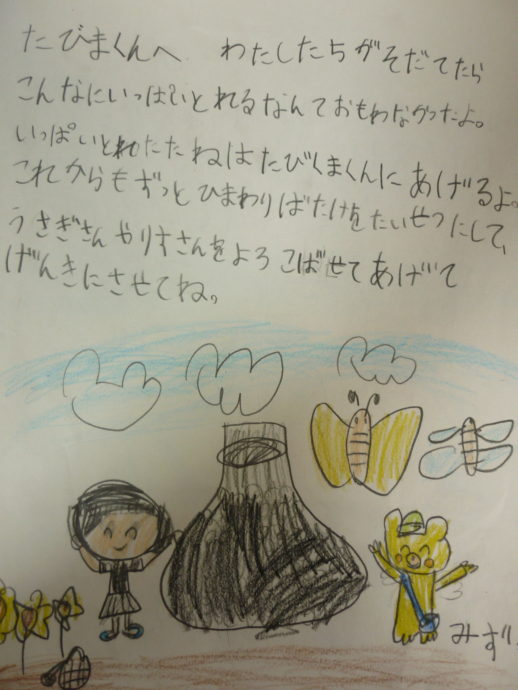 たびまくんへ わたしたちがそだてたら
こんなにいっぱいとれるなんておもわなかったよ。
いっぱいとれたたねはたびくまくんにあげるよ。
これからもずっとひまわりばたけをたいせつにして、
うさぎさんやりすさんをよろこばせてあげて
げんきにさせてね。
みずき